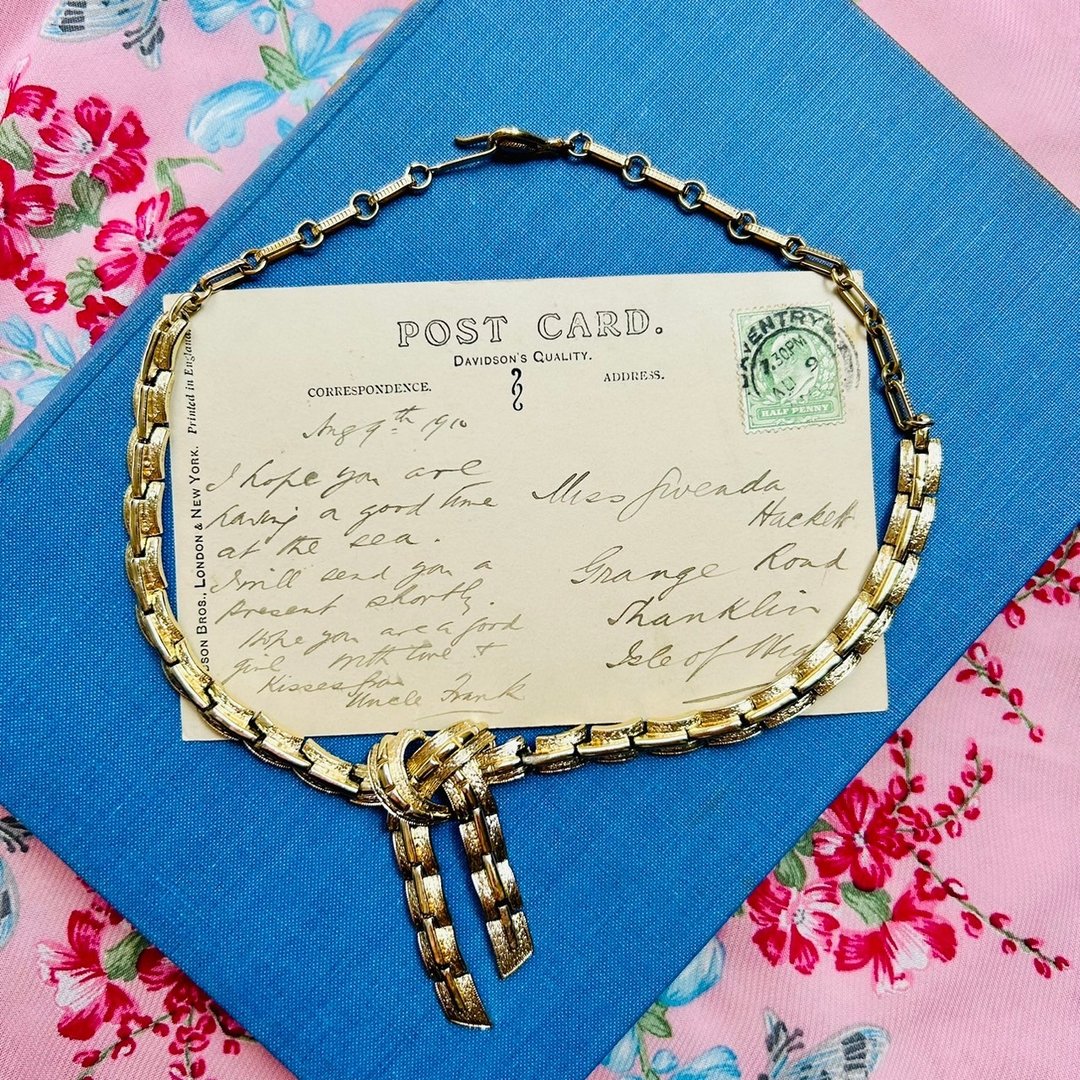 POST CARD.
DAVIDSON'S QUALITY.
CORRESPONDENCE.
ADDRESS.
Printed in England.
DSON BROS., LONDON & NEW YORK.
VENTRY
7.30PM
AU 9
HALF PENNY
Aug 9th 1910
I hope you are
having a good time
at the sea.
I will send you a
present shortly.
Hope you are a good
girl with love &
Kisses from
Uncle Frank
Miss Gwenda
Hackett
Grange Road
Shanklin
Isle of Wig